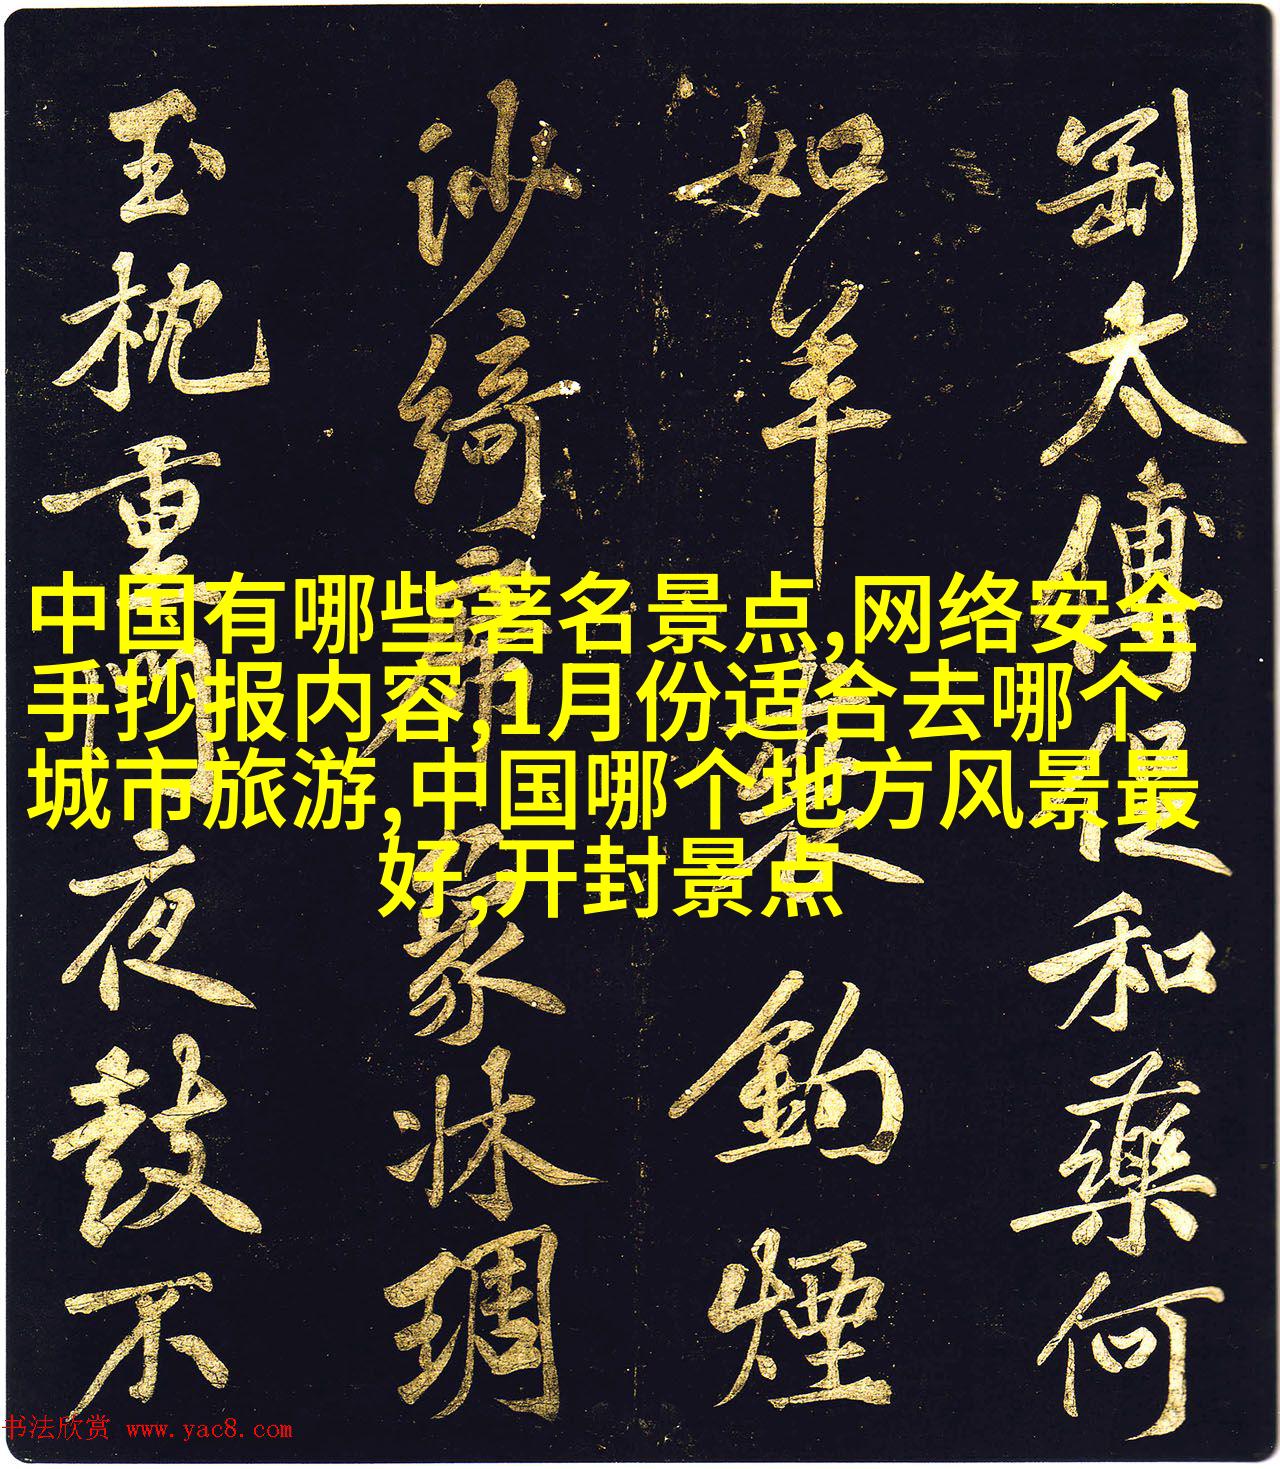 中国有哪些著名景点,网络安全
手抄报内容,1月份适合去哪个
城市旅游,中国哪个地方风景最
好,开封景点
太傅促和藥何
如羊裘釣煙
沙綺席象牀琱
玉枕重門夜鼓不
书法欣赏 www.yac8.com